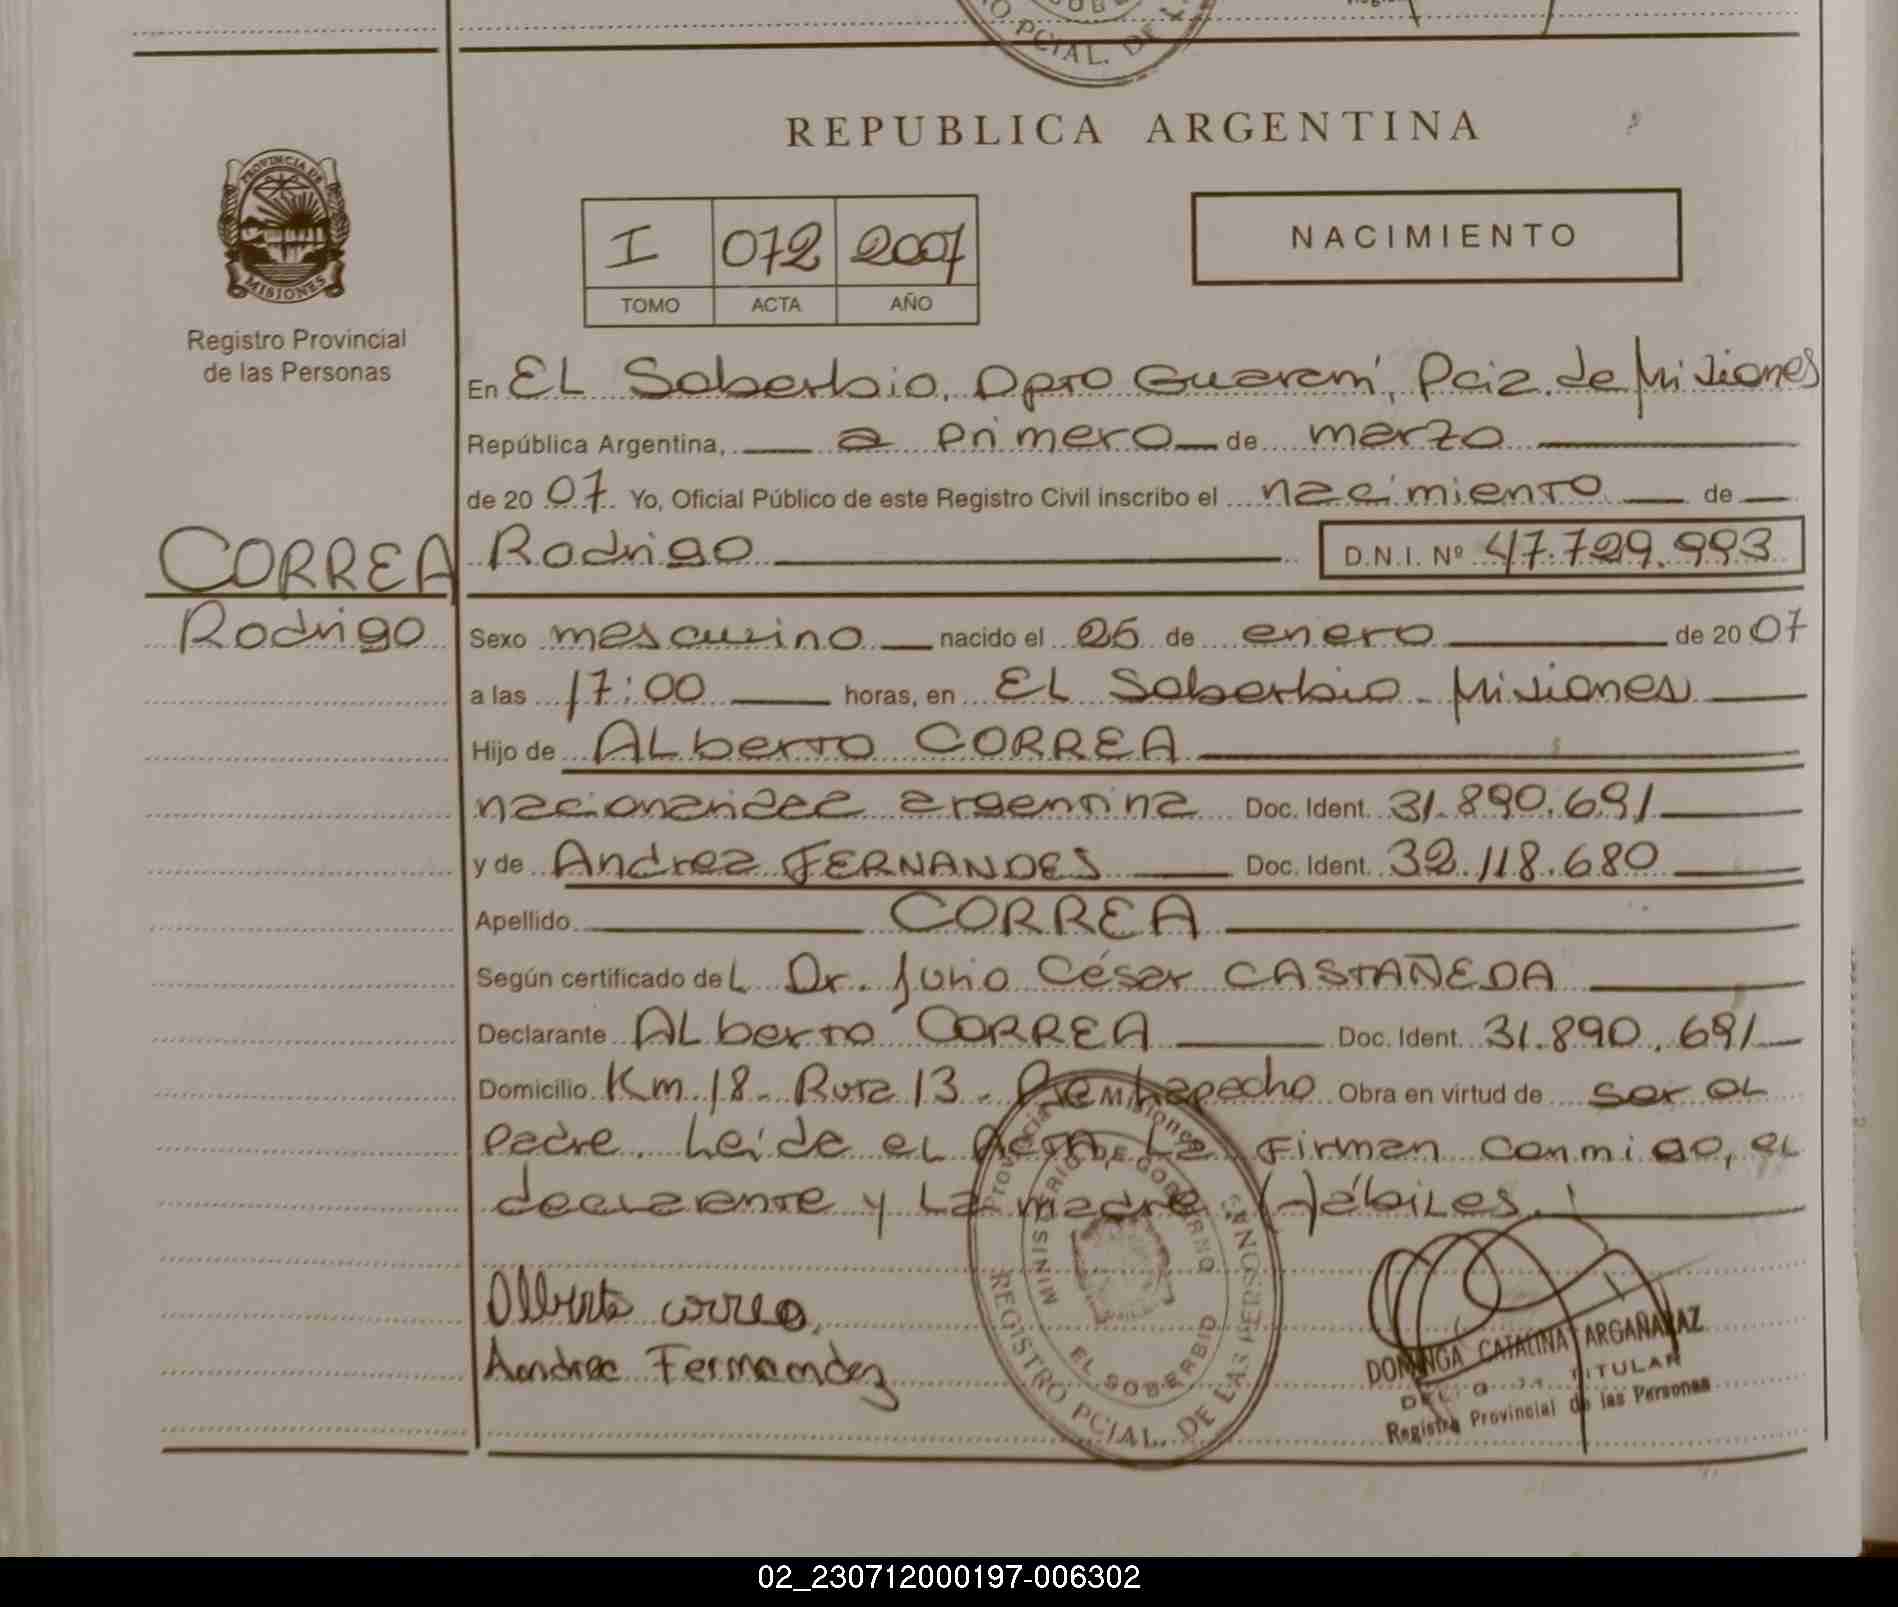 PCIAL. DE
REPUBLICA ARGENTINA
PROVINCIA DE
MISIONES
Registro Provincial
de las Personas
I 072 2007
TOMO ACTA AÑO
NACIMIENTO
En EL Soberbio, Dpto Guaraní, Pcia. de Misiones
República Argentina, a primero de marzo
de 20 07 Yo, Oficial Público de este Registro Civil inscribo el nacimiento de
CORREA Rodrigo D.N.I. Nº 47.729.993
Rodrigo Sexo masculino nacido el 26 de enero de 20 07
a las 17:00 horas, en EL Soberbio - Misiones
Hijo de ALberto CORREA
nacionalidad argentina Doc. Ident. 31.890.691
y de Andrea FERNANDES Doc. Ident. 32.118.680
Apellido CORREA
Según certificado deL Dr. Julio César CASTAÑEDA
Declarante ALberto CORREA Doc. Ident. 31.890.691
Domicilio Km 18 - Ruta 13 - Obra en virtud de ser eL
padre. Leída eL Acta, La firman conmigo, eL
declarante y La madre. Hábiles.
Alberto correa
Andrea Fernandez
Provincia de Misiones
MINISTERIO DE GOBIERNO
EL SOBERBIO
REGISTRO PCIAL. DE LAS PERSONAS
DOMINGA CATALINA ARGAÑARAZ
TITULAR
Registro Provincial de las Personas
02_230712000197-006302